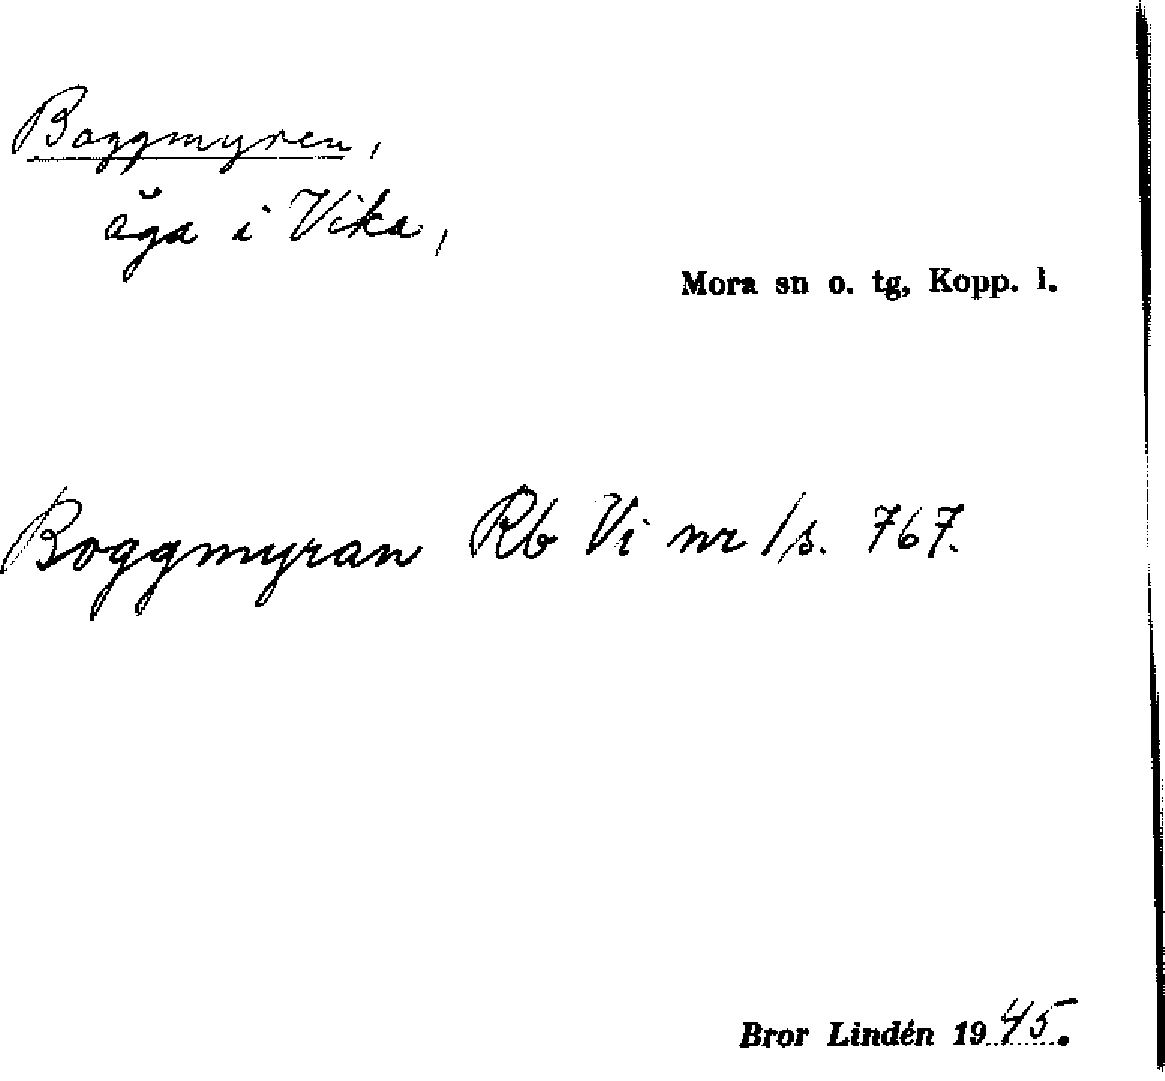 Boggmyren,
äga i Vika,
Mora sn o. tg, Kopp. l.
Boggmyran Rb Vi nr 1/s. 767.
Bror Lindén 1945.